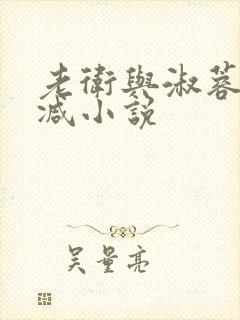 老衛與淑蓉
减小說
吴量亮